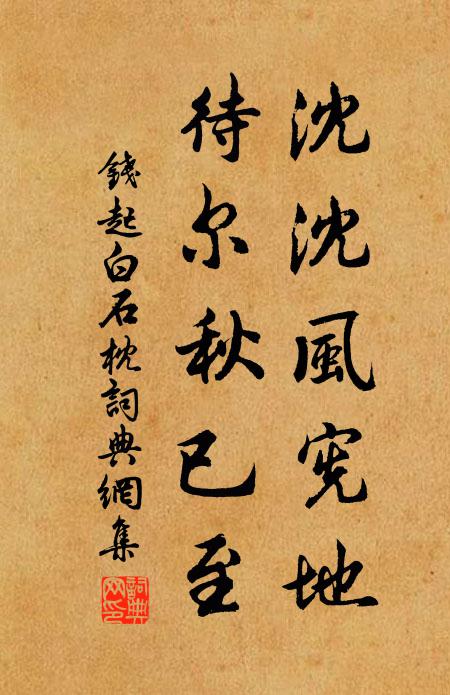 沈沈風宪地
待尔秋已至
錢起白石枕詞典網集
詞典网印